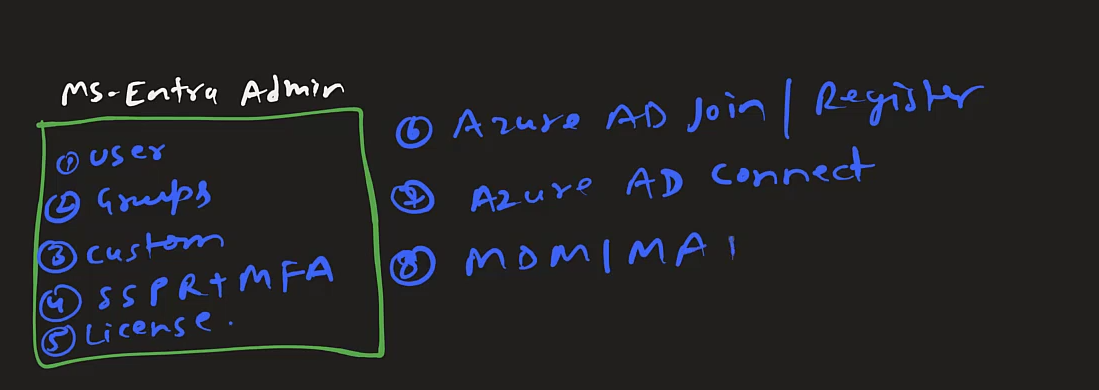 MS-Entra Admin
① User
② Groups
③ Custom
④ SSPR+MFA
⑤ License.
⑥ Azure AD Join | Register
⑦ Azure AD Connect
⑧ MDM | MA